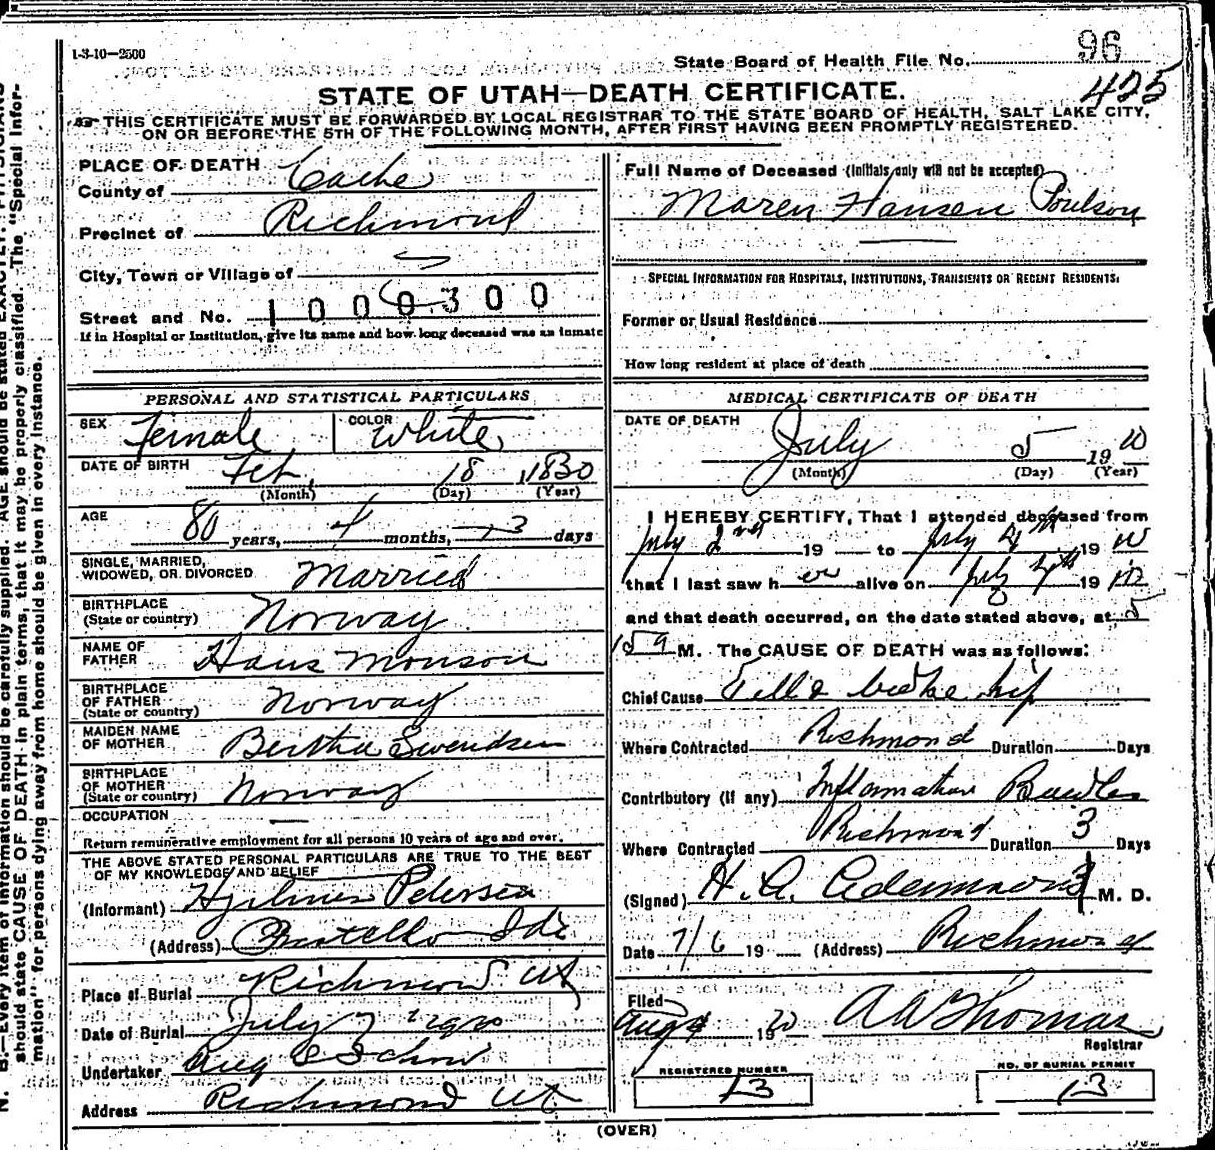 1-3-10—2500
State Board of Health File No. 96
425
STATE OF UTAH—DEATH CERTIFICATE.
THIS CERTIFICATE MUST BE FORWARDED BY LOCAL REGISTRAR TO THE STATE BOARD OF HEALTH, SALT LAKE CITY,
ON OR BEFORE THE 5TH OF THE FOLLOWING MONTH, AFTER FIRST HAVING BEEN PROMPTLY REGISTERED.
PLACE OF DEATH
County of Cache
Precinct of Richmond
City, Town or Village of
Street and No. 1000300
If in Hospital or Institution, give its name and how long deceased was an inmate
PERSONAL AND STATISTICAL PARTICULARS
SEX Female COLOR White
DATE OF BIRTH Feb. 18 1830
(Month) (Day) (Year)
AGE 80 years, 4 months, 13 days
SINGLE, MARRIED,
WIDOWED, OR DIVORCED Married
BIRTHPLACE
(State or country) Norway
NAME OF
FATHER Hans Monson
BIRTHPLACE
OF FATHER
(State or country) Norway
MAIDEN NAME
OF MOTHER Bertha Swendsen
BIRTHPLACE
OF MOTHER
(State or country) Norway
OCCUPATION
Return remunerative employment for all persons 10 years of age and over.
THE ABOVE STATED PERSONAL PARTICULARS ARE TRUE TO THE BEST
OF MY KNOWLEDGE AND BELIEF
(Informant) Pedersen
(Address) Ida
Place of Burial Richmond Ut
Date of Burial July 7
Undertaker Aug Schow
Address Richmond Ut
Full Name of Deceased (Initials only will not be accepted)
Maren Hansen Poulson
SPECIAL INFORMATION FOR HOSPITALS, INSTITUTIONS, TRANSIENTS OR RECENT RESIDENTS.
Former or Usual Residence
How long resident at place of death
MEDICAL CERTIFICATE OF DEATH
DATE OF DEATH
July 5 1910
(Month) (Day) (Year)
I HEREBY CERTIFY, That I attended deceased from
July 2nd 19 to July 4th 1910
that I last saw her alive on July 4th 1910
and that death occurred, on the date stated above, at 5
M. The CAUSE OF DEATH was as follows:
Chief Cause Fell & broke hip
Where Contracted Richmond Duration Days
Contributory (if any) Inflamation Bowles
Where Contracted Richmond Duration 3 Days
(Signed) H. A. Adamson M. D.
Date 7/6 19 (Address) Richmond
Filed
Aug 4 19 A W Thomas
Registrar
REGISTERED NUMBER
13
NO. OF BURIAL PERMIT
13
(OVER)
N. B.—Every item of information should be carefully supplied. AGE should be stated EXACTLY. PHYSICIANS
should state CAUSE OF DEATH in plain terms, that it may be properly classified. The "Special Infor-
mation" for persons dying away from home should be given in every instance.